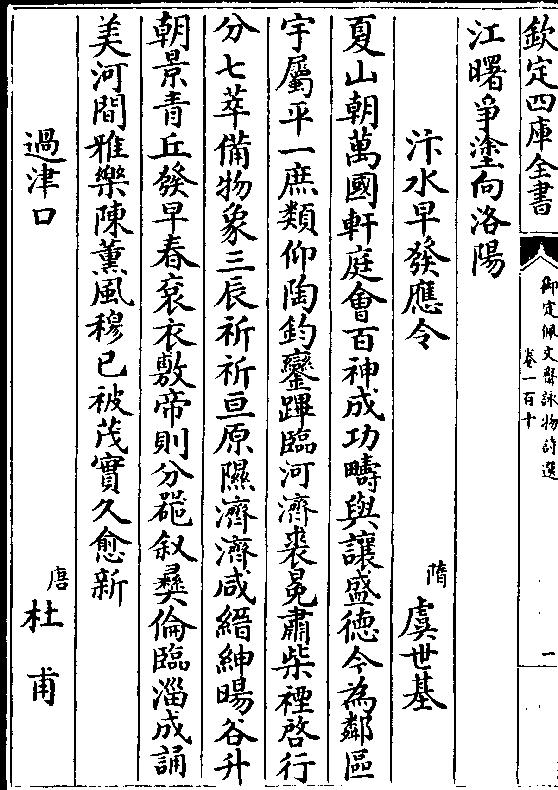 欽定四庫全書
御定佩文齋詠物詩選
卷一百十
一
江曙爭塗向洛陽
汴水早發應令
隋
虞世基
夏山朝萬國軒庭會百神成功疇與讓盛德今為鄰區
宇屬平一庶類仰陶鈞鑾蹕臨河濟裘冕肅柴禋啓行
分七萃備物象三辰祈祈亘原隰濟濟咸縉紳暘谷升
朝景青丘發早春袞衣敷帝則分
叙彞倫臨淄成誦
美河間雅樂陳薰風穆已被茂實久愈新
過津口
唐
杜甫